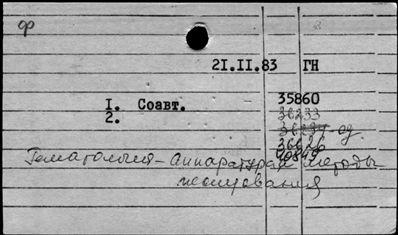 ф
21.II.83 ГН
I. Соавт. 35860
2. 36233
36234 - од.
36626
90849
Гематология - Аппаратурая методы
исследования